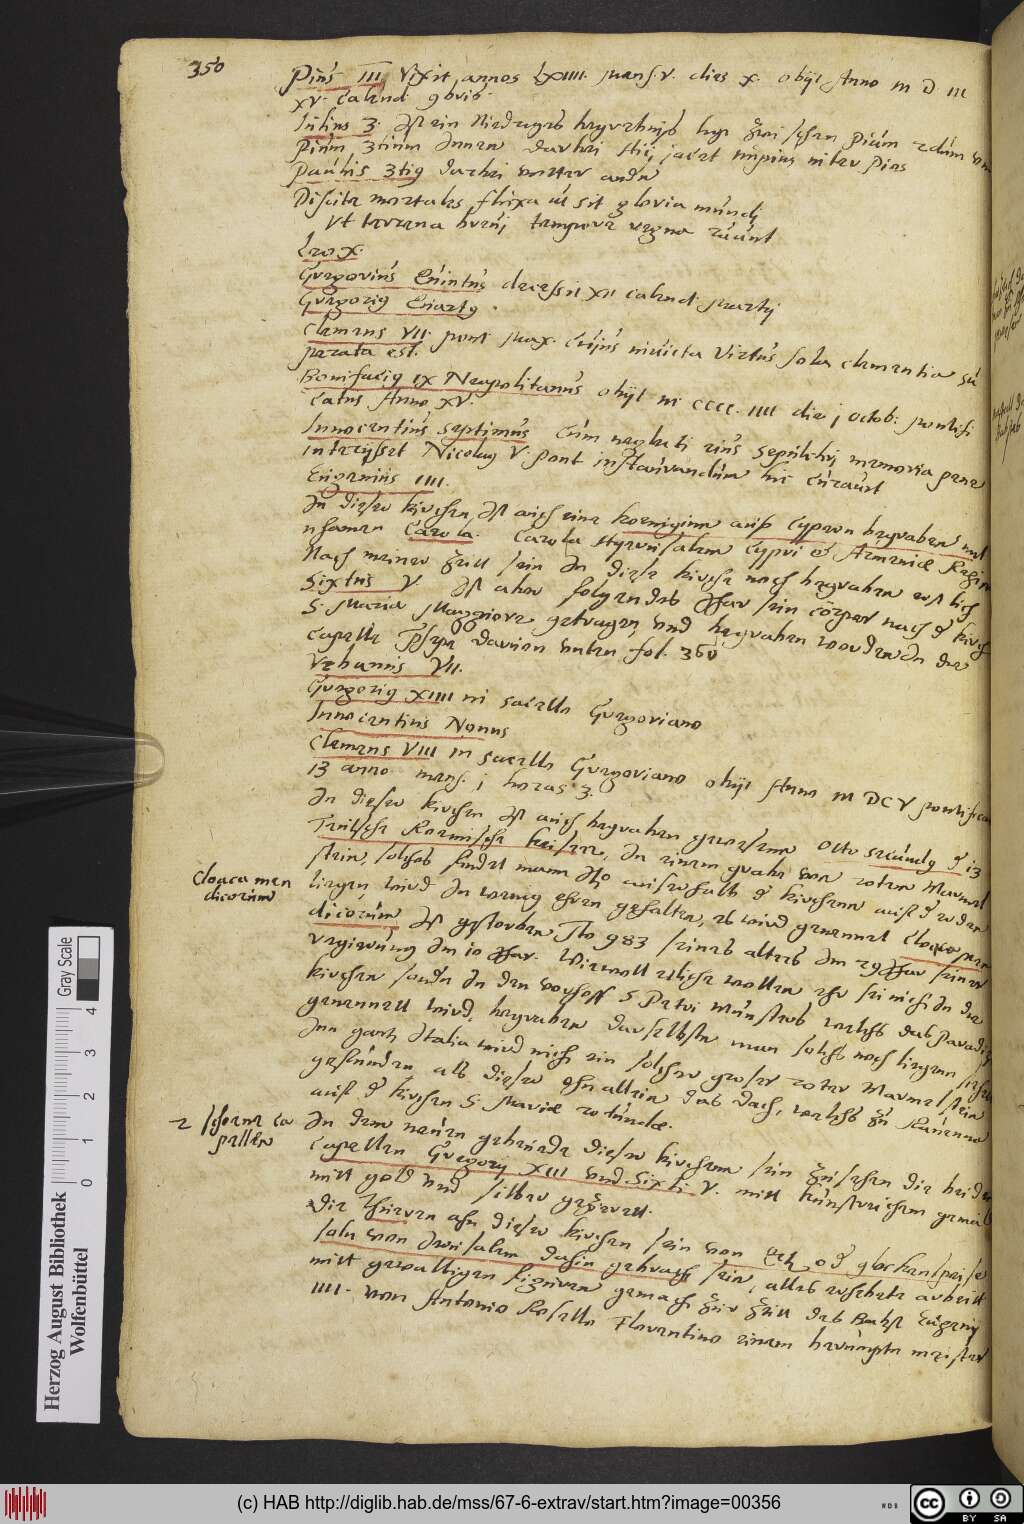 350
Pius III Vixit annos LXIIII. mens. V. dies X. obijt Anno M D III
XV. Calend. 9bris.
Iulius 3. Ist ein Niedriges begrebnis hye zwi schen Pium 2dum vnd
Pium 3tium Innen darbei stet jacet impius inter pios
Paulus 3tig darbei vntter andern
Discite mortales fluxa ut sit gloria mundi
Vt terrena brevi tempore regna ruunt
Leo X.
Gregorius Quintus decessit XII calend. Martij
Gregorig Quartg.
Clemens VII. pont. Max. Cuius invicta Virtus sola clementia su
perata est.
Bonifacig IX Neapolitanus obijt M CCCC. IIII die j octob. pontifi
catus Anno XV.
Innocentius Septimus Cum neglecti eius Sepulchri memoria pene
interijsset Nicolaus V. pont. instaurandum hic curavit
Eugenius IIII.
In dieser kirchen Ist auch eine koeniginn auß Cypern begraben mit
nhamen Carola. Carola Hyerusalem Cypri et Armeniae Regin
Nach meiner Zeitt sein In diese kirche noch begraben erstlich
Sixtus V. Ist aber folgendes Jhar sein cörper nach der kirch
S. Maria Maggiore getragen, vnd begraben worden In der
Capelle Presepe davon vnten fol. 360
Vrbanus VII.
Gregorig XIIII in sacello Gregoriano
Innocentius Nonus
Clemens VIII in sacello Gregoriano obijt Anno M DC V pontificat
13 anno mens. j horas 3.
In dieser kirchen Ist auch begraben gewesenn Otto secundg der 13
Teutsche Roemische keiser, In einem grabe von roten Marmel
stein, solches findet mann itzo ausserhalb der kirchenn auff der erden
liegen, wird In wenig ehren gehalten, es wird genennet Cloaca men
dicorum Ist gestorben Ao 983 seines alters Im 29 Jhar seiner
regierung Im 10 Jhar. Wiewoll etliche wollen ehr sei nicht In der
kirchen sondern In den vorhoff S. Petri Münsters welchs das Paradiß
genennett wird, begraben daselbsten man solchs noch liegen siehet
Inn gantz Italia wird nicht ein solcher groser roter Marmelstein
gefunden, als dieser ohn allein das Dach, welchs zu Rauenna
auff der kirchen S. Mariae rotundae.
In dem neuen gebeude dieser kirchenn sein zu sehen die beiden
Capellen Gregorij XIII vnd Sixti V. mitt kunstreichem gemäl
mitt gold vnd silber gezieret.
Die Thueren ahn dieser kirchen sein von Ertz oder glockenspeise
solen von Jerusalem dahin gebracht sein, alles erhebete arbeitt
mitt gewalltigen figuren gemacht zur Zeitt des Babst Eugenij
IIII. von Antonio Rosello Florentino einem berumpten meister
Cloaca men
dicorum
2 schoene ca
pellen
Gray Scale
4
3
2
1
0
Herzog August Bibliothek
Wolfenbüttel
(c) HAB http://diglib.hab.de/mss/67-6-extrav/start.htm?image=00356
WDB
cc
BY SA